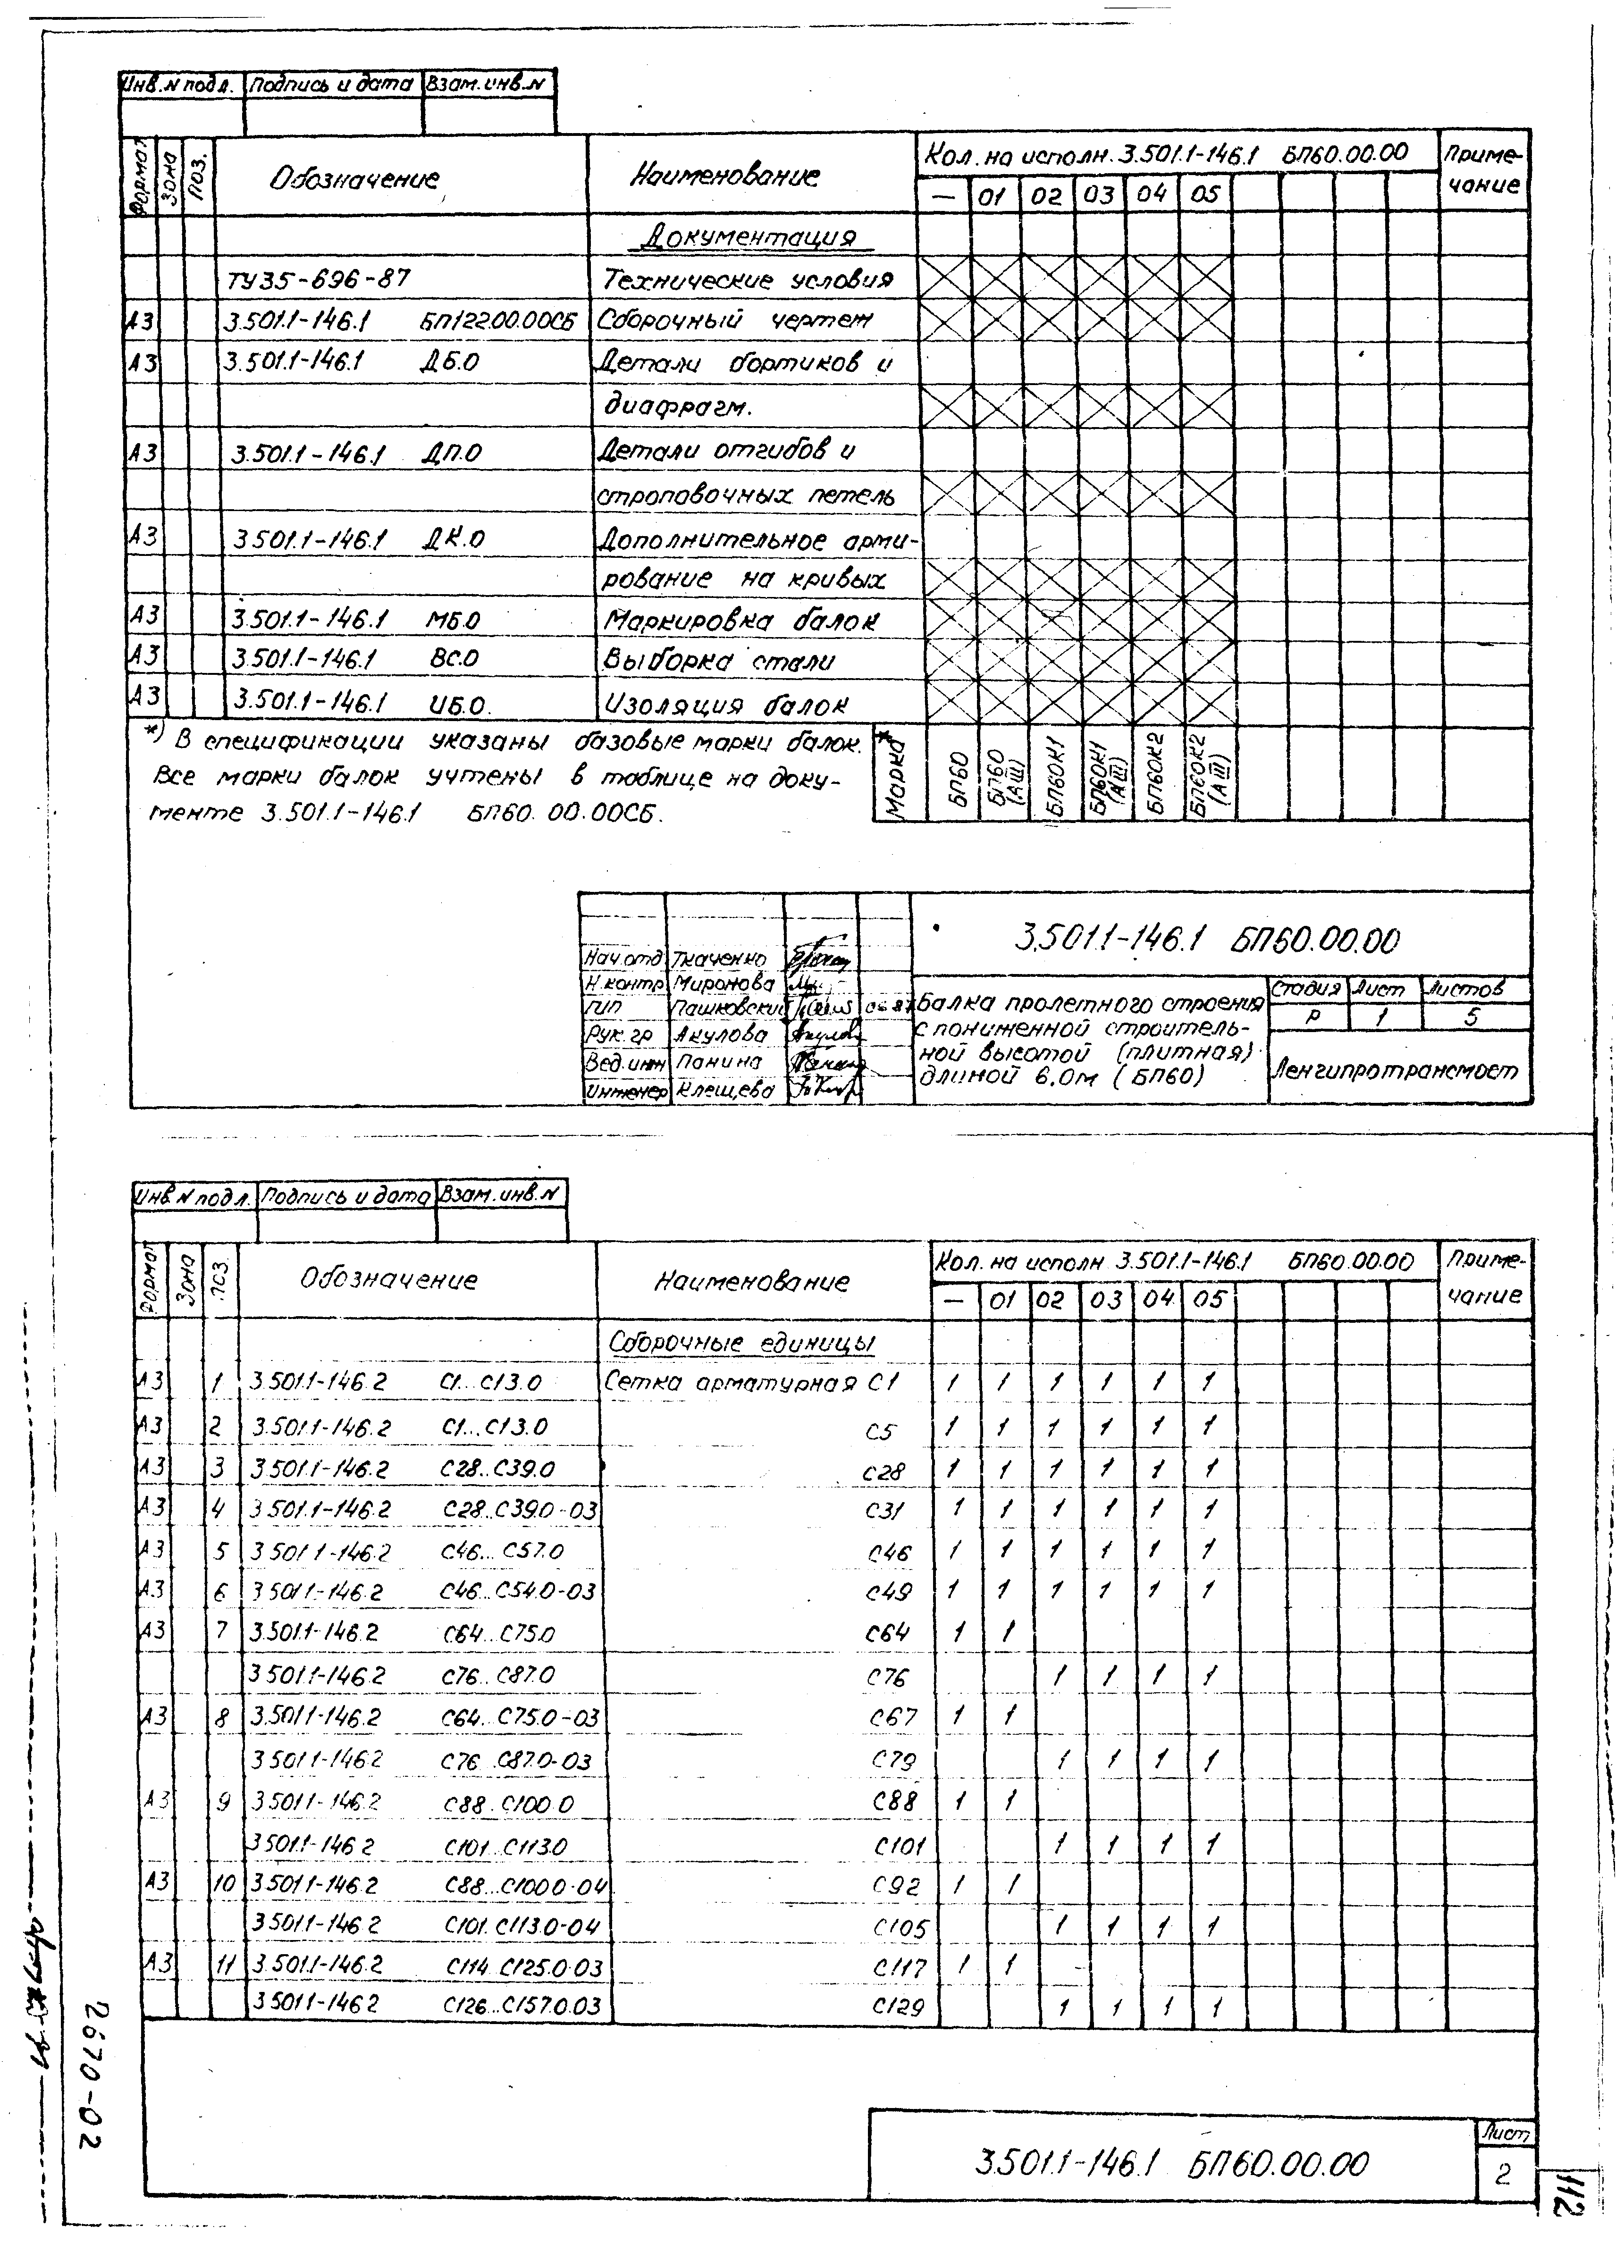 Инв.N подл. Подпись и дата Взам.инв.N
Формат Зона Поз. Обозначение Наименование Кол. на исполн. 3.501.1-146.1 БП60.00.00 Приме-
чание
— 01 02 03 04 05
Документация
ТУ35-696-87 Технические условия
А3 3.501.1-146.1 БП122.00.00СБ Сборочный чертеж
А3 3.501.1-146.1 ДБ.0 Детали бортиков и
диафрагм.
А3 3.501.1-146.1 ДП.0 Детали отгибов и
строповочных петель
А3 3.501.1-146.1 ДК.0 Дополнительное арми-
рование на кривых
А3 3.501.1-146.1 МБ.0 Маркировка балок
А3 3.501.1-146.1 ВС.0 Выборка стали
А3 3.501.1-146.1 ИБ.0. Изоляция балок
*) В спецификации указаны базовые марки балок.
Все марки балок учтены в таблице на доку-
менте 3.501.1-146.1 БП60.00.00СБ.
Марка* БП60 БП60 (АIII) БП60К1 БП60К1 (АIII) БП60К2 БП60К2 (АIII)
3.501.1-146.1 БП60.00.00
Нач.отд Ткаченко
Н.контр Миронова
ГИП Пашковский
Рук.гр Акулова
Вед.инж Панина
Инженер Клещева
Балка пролетного строения
с пониженной строитель-
ной высотой (плитная)
длиной 6.0м (БП60)
Стадия Лист Листов
Р 1 5
Ленгипротрансмост
Инв.N подл. Подпись и дата Взам.инв.N
Формат Зона Поз. Обозначение Наименование Кол. на исполн 3.501.1-146.1 БП60.00.00 Приме-
чание
— 01 02 03 04 05
Сборочные единицы
А3 1 3.501.1-146.2 С1...С13.0 Сетка арматурная С1 1 1 1 1 1 1
А3 2 3.501.1-146.2 С1...С13.0 С5 1 1 1 1 1 1
А3 3 3.501.1-146.2 С28..С39.0 С28 1 1 1 1 1 1
А3 4 3.501.1-146.2 С28..С39.0-03 С31 1 1 1 1 1 1
А3 5 3.501.1-146.2 С46...С57.0 С46 1 1 1 1 1 1
А3 6 3.501.1-146.2 С46...С54.0-03 С49 1 1 1 1 1 1
А3 7 3.501.1-146.2 С64...С75.0 С64 1 1
3.501.1-146.2 С76..С87.0 С76 1 1 1 1
А3 8 3.501.1-146.2 С64..С75.0-03 С67 1 1
3.501.1-146.2 С76..С87.0-03 С79 1 1 1 1
А3 9 3.501.1-146.2 С88..С100.0 С88 1 1
3.501.1-146.2 С101..С113.0 С101 1 1 1 1
А3 10 3.501.1-146.2 С88...С100.0-04 С92 1 1
3.501.1-146.2 С101..С113.0-04 С105 1 1 1 1
А3 11 3.501.1-146.2 С114..С125.0-03 С117 1 1
3.501.1-146.2 С126...С157.0.03 С129 1 1 1 1
3.501.1-146.1 БП60.00.00
Лист
2
2670-02
112